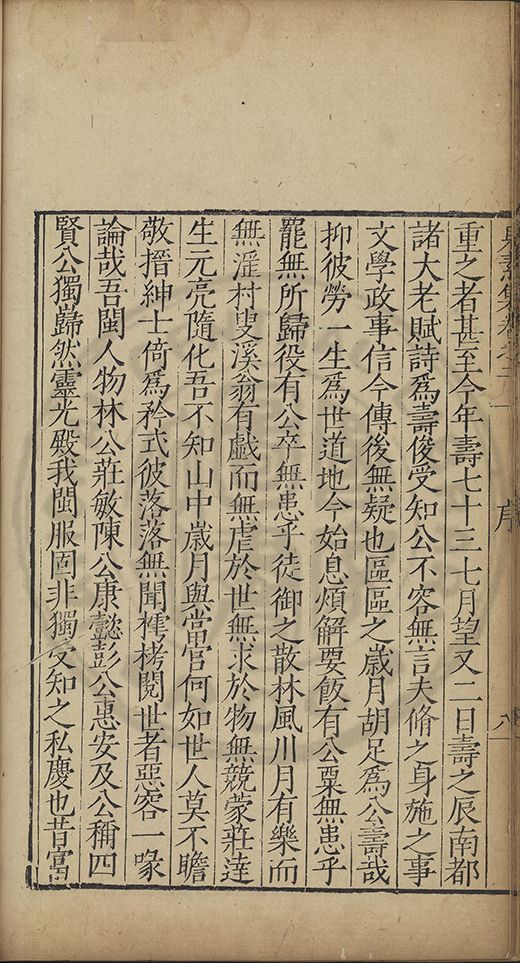 序 八
重之者甚至今年壽七十三七月望又二日壽之辰南都
諸大老賦詩爲壽俊受知公不容無言夫脩之身施之事
文學政事信今傳後無疑也區區之歲月胡足爲公壽哉
抑彼勞一生爲世道地今始息煩解要飯有公粟無患乎
罷無所歸役有公卒無患乎徒御之散林風川月有樂而
無涯村叟溪翁有戲而無虐於世無求於物無競蒙莊達
生元亮隨化吾不知山中歲月與當官何如世人莫不瞻
敬搢紳士倚爲矜式彼落落無聞樗栲閱世者惡容一喙
論哉吾閩人物林公莊敏陳公康懿彭公惠安及公稱四
賢公獨巋然靈光殿我閩服固非獨受知之私慶也昔富